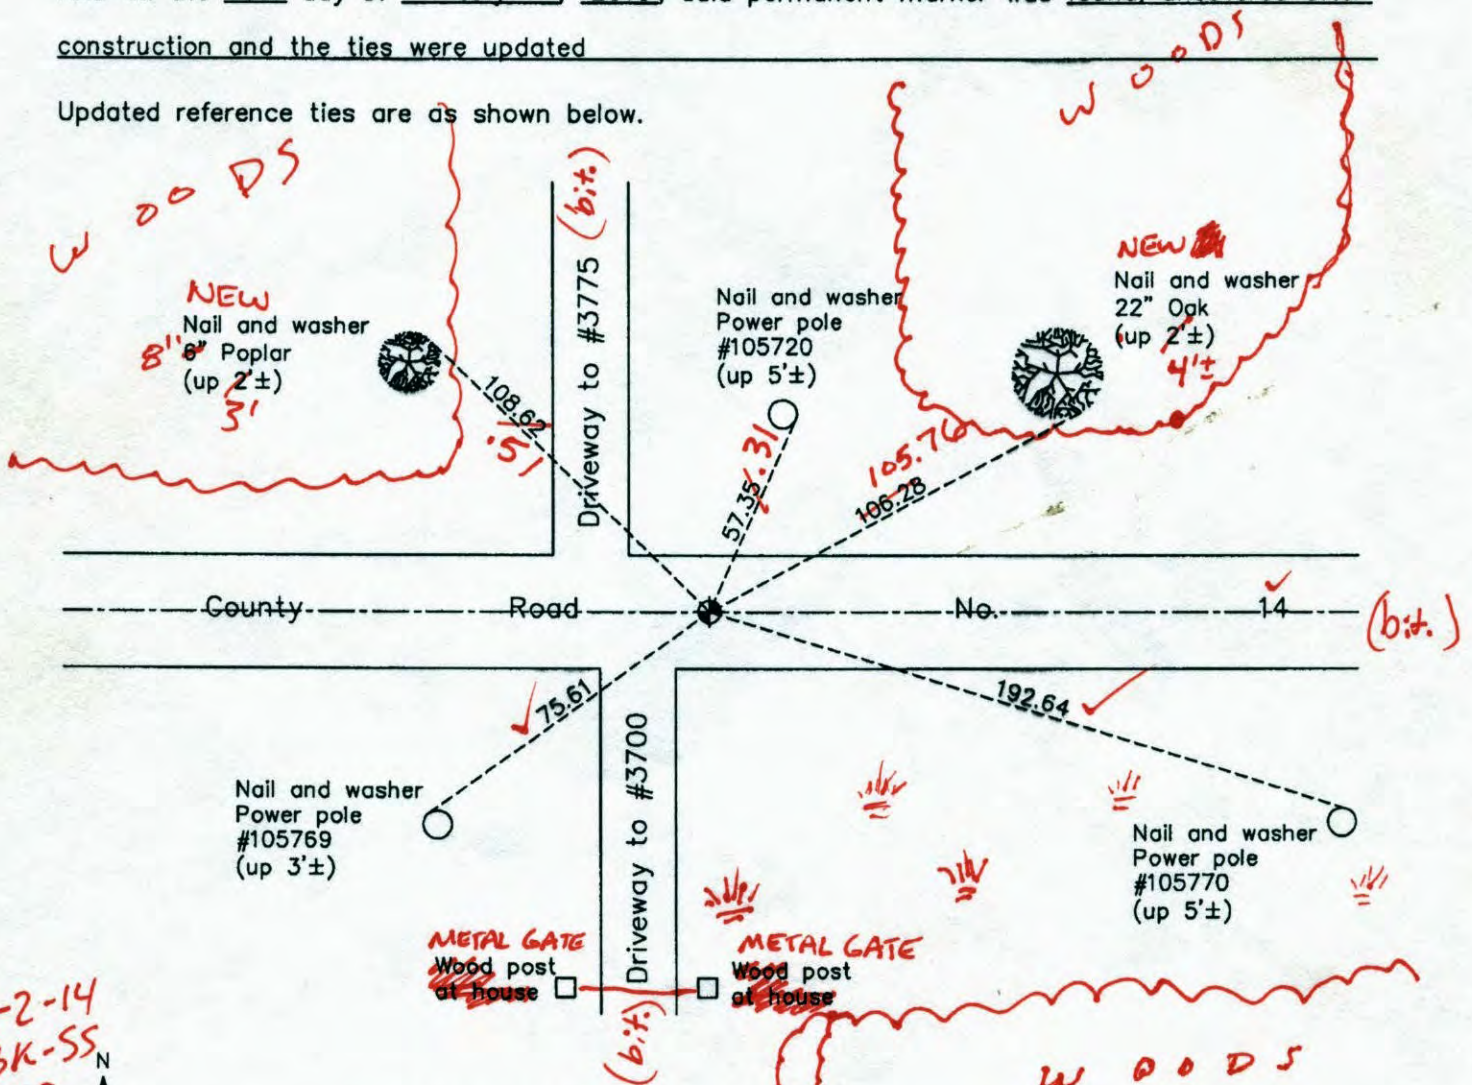 construction and the ties were updated
Updated reference ties are as shown below.
WOODS
WOODS
(bit.)
NEW
Nail and washer
8" 6" Poplar
(up 2'±)
3'
108.62
.51
Driveway to #3775
Nail and washer
Power pole
#105720
(up 5'±)
57.35 .31
NEW
Nail and washer
22" Oak
(up 2'±)
4'±
105.76
106.28
County Road No. 14
(bit.)
75.61
192.64
Nail and washer
Power pole
#105769
(up 3'±)
Driveway to #3700
Nail and washer
Power pole
#105770
(up 5'±)
METAL GATE
Wood post
at house
METAL GATE
Wood post
at house
(bit)
-2-14
K-SS
N
WOODS